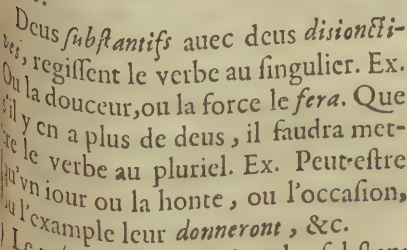 Deus ſubſtantifs auec deus diſioncti-
ves, regiſſent le verbe au ſingulier. Ex.
Ou la douceur,ou la force le fera. Que
s'il y en a plus de deus, il faudra met-
tre le verbe au pluriel. Ex. Peut-eſtre
qu'vn iour ou la honte, ou l'occaſion,
ou l'example leur donneront, &c.